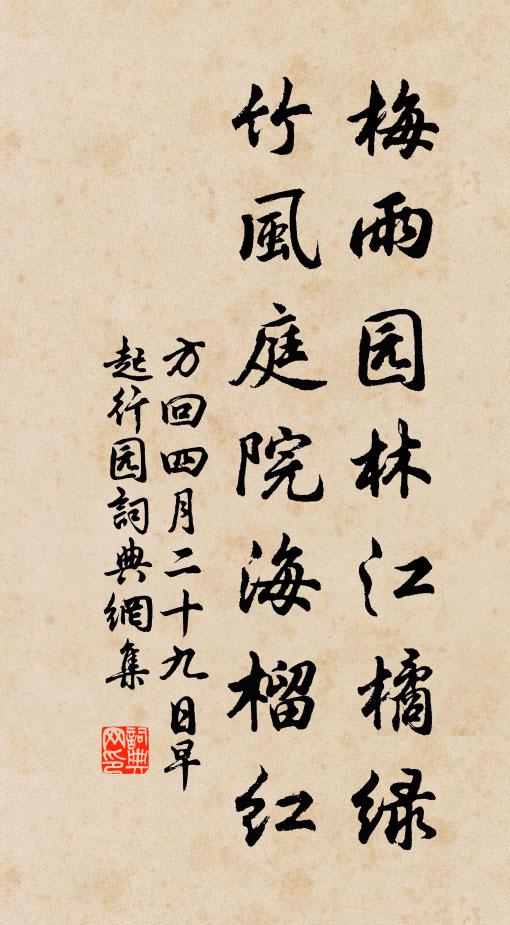 梅雨园林江橘绿
竹風庭院海榴红
方回四月二十九日早
起行园詞典網集
詞典
网印